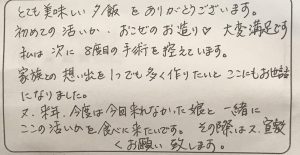 とても美味しい夕飯をありがとうございます。
初めての活いか・おこぜのお造り♡大変満足です
私は次に8度目の手術を控えています。
家族との想い出を1つでも多く作りたいとここにもお世話
になりました。
又、来年、今度は今回来れなかった娘と一緒に
ここの活いかを食べに来たいです。その際は又、宜敷
くお願い致します。